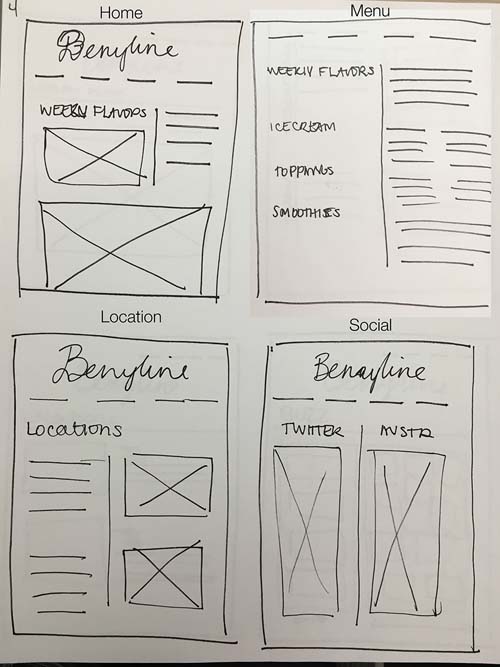 4
Home
Benyline
WEEKLY FLAVORS
Menu
WEEKLY FLAVORS
ICECREAM
TOPPINGS
SMOOTHIES
Location
Benyline
LOCATIONS
Social
Benayline
TWITTER
INSTA